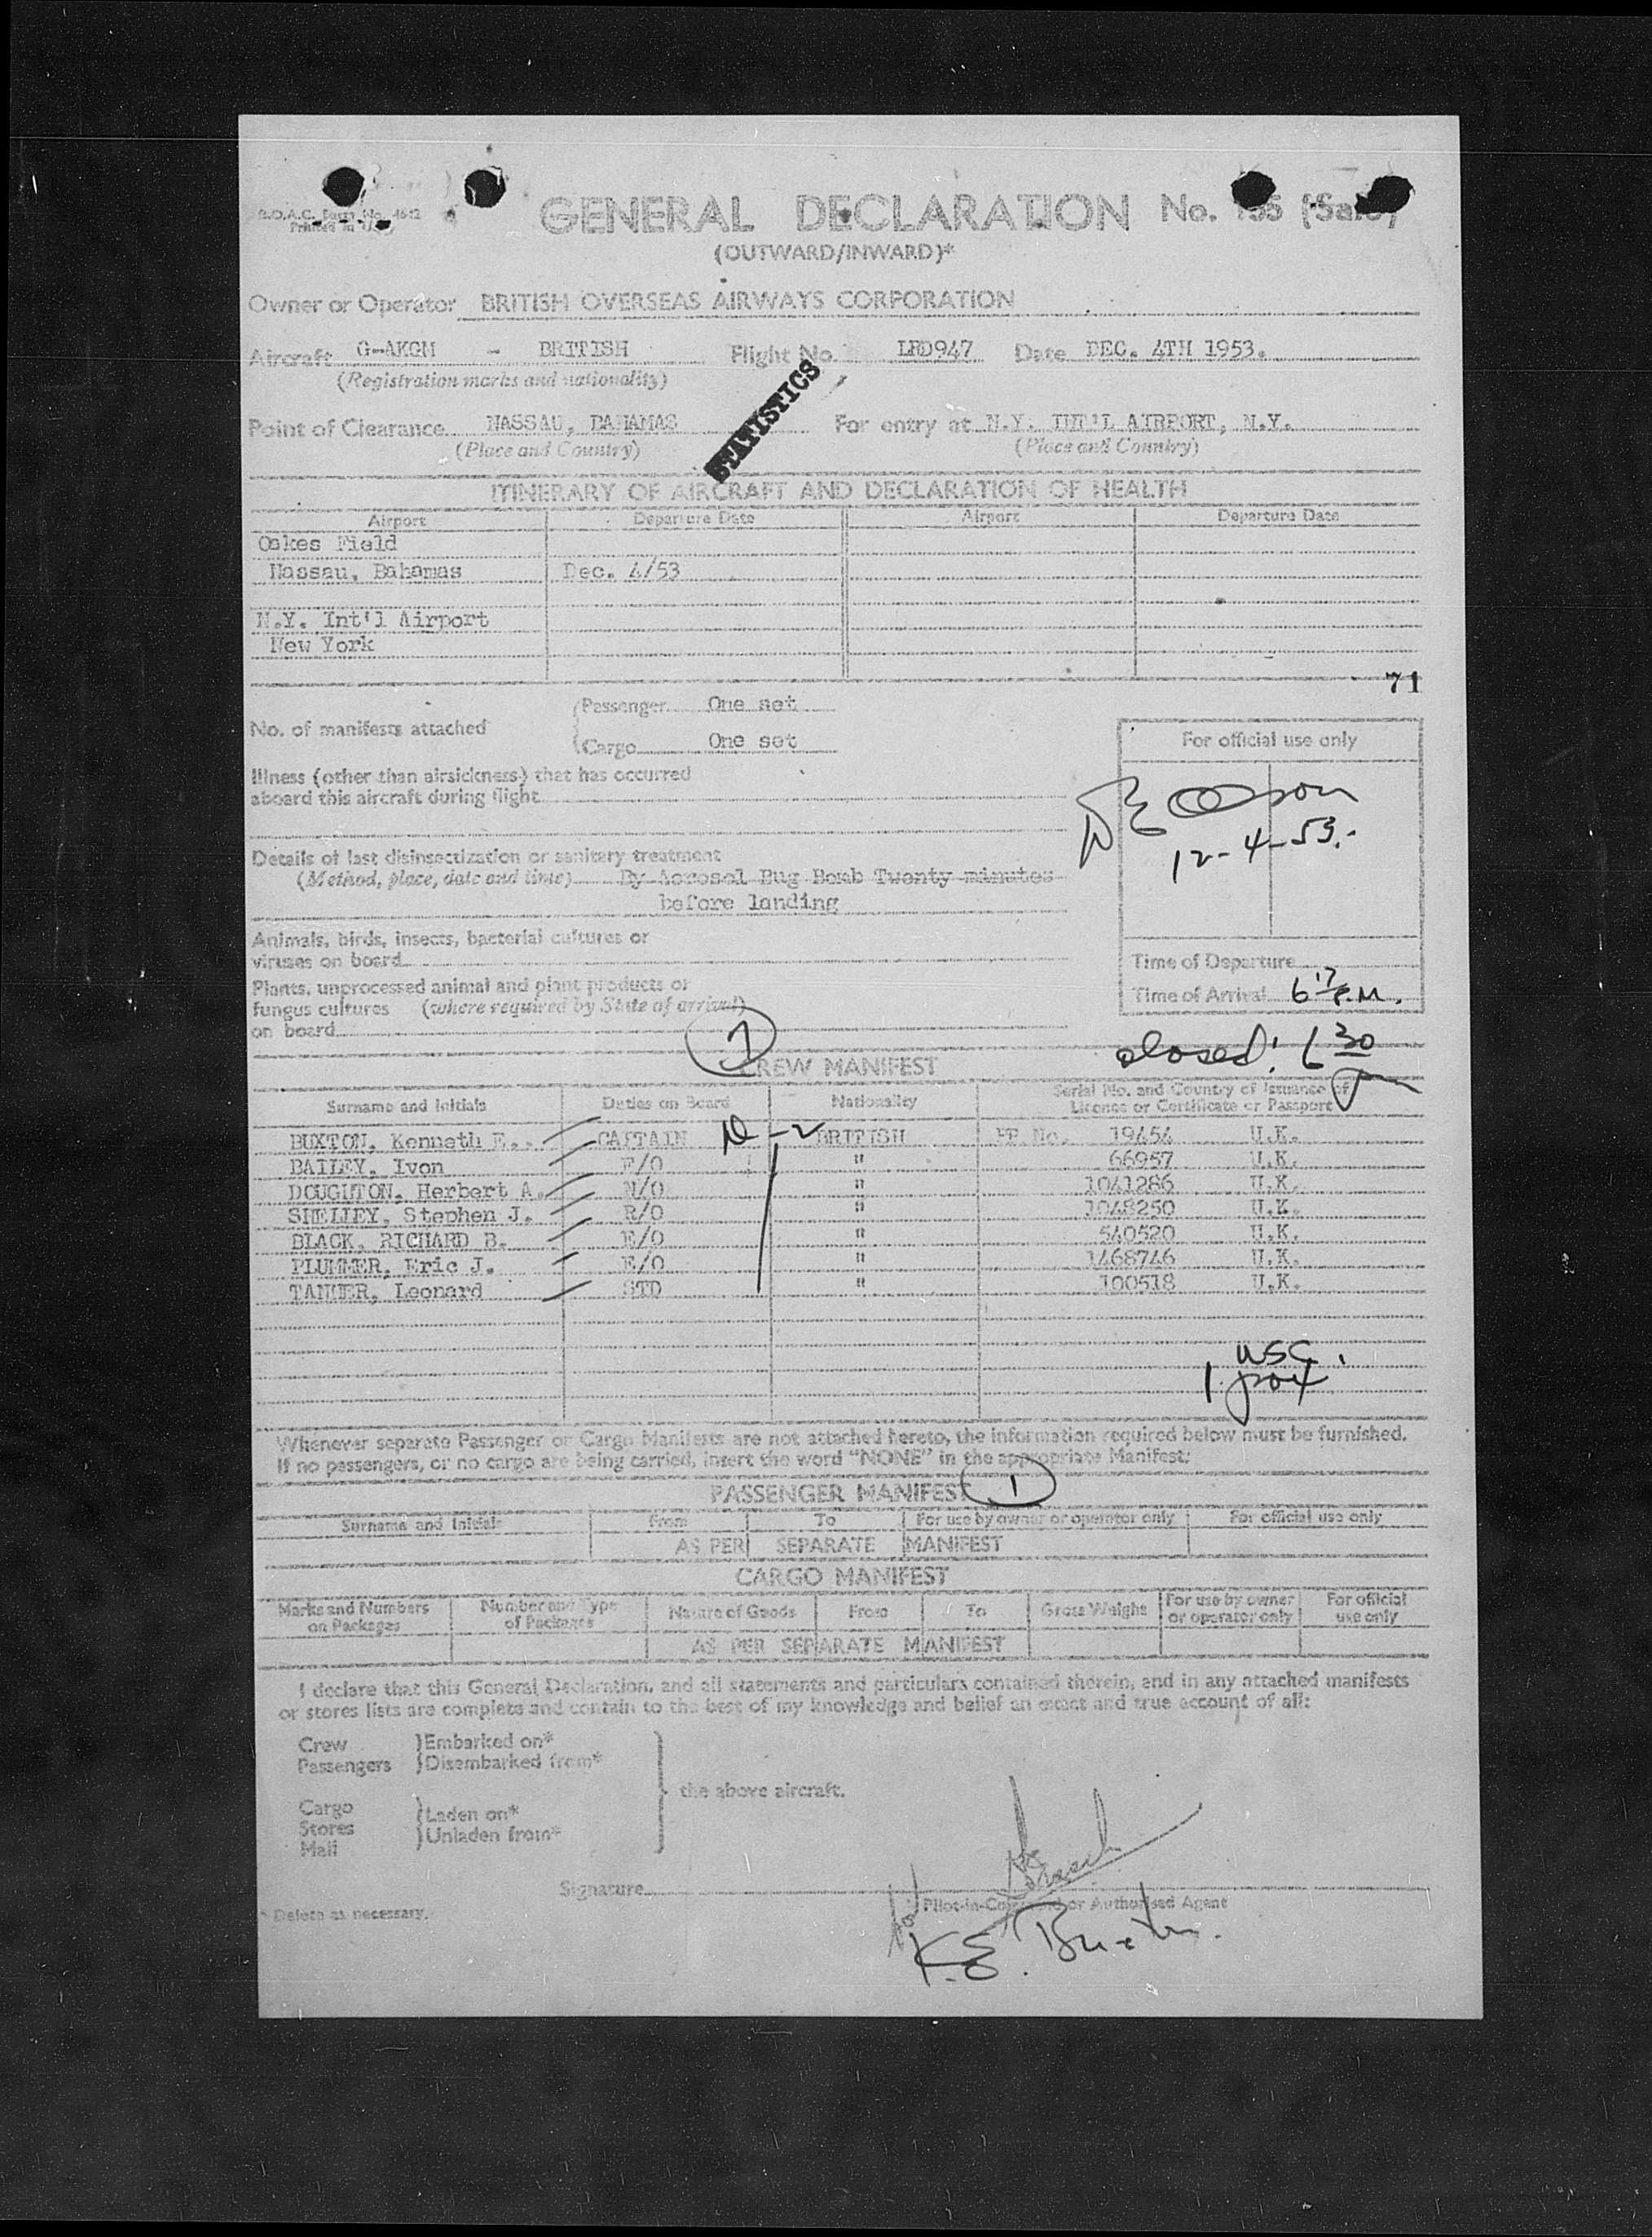 B.O.A.C. Form No. 4642
Printed in U.K.
GENERAL DECLARATION No.
(OUTWARD/INWARD)*
Owner or Operator BRITISH OVERSEAS AIRWAYS CORPORATION
Aircraft G-AKGM - BRITISH Flight No. LRD947 Date DEC. 4TH 1953.
(Registration marks and nationality)
STATISTICS
Point of Clearance NASSAU, BAHAMAS For entry at N.Y. INT'L AIRPORT, N.Y.
(Place and Country) (Place and Country)
ITINERARY OF AIRCRAFT AND DECLARATION OF HEALTH
Airport Departure Date Airport Departure Date
Oakes Field
Nassau, Bahamas Dec. 4/53
N.Y. Int'l Airport
New York
71
No. of manifests attached
Passenger One set
Cargo One set
For official use only
Illness (other than airsickness) that has occurred
aboard this aircraft during flight
12-4-53.
Details of last disinsectization or sanitary treatment
(Method, place, date and time) By Aerosol Bug Bomb Twenty minutes
before landing
Animals, birds, insects, bacterial cultures or
viruses on board
Time of Departure
Plants, unprocessed animal and plant products or
fungus cultures (where required by State of arrival)
on board
Time of Arrival 6 17 P.M.
closed! 6 30
7
CREW MANIFEST
Surname and Initials Duties on Board Nationality Serial No. and Country of Issuance of
Licence or Certificate or Passport
BUXTON, Kenneth E. CAPTAIN D-2 BRITISH PP. No. 19454 U.K.
BAILEY, Ivon F/O " 66957 U.K.
DOUGHTON, Herbert A. N/O " 1041286 U.K.
SHELLEY, Stephen J. R/O " 1048250 U.K.
BLACK, RICHARD B. E/O " 540520 U.K.
PLUMMER, Eric J. E/O " 1468746 U.K.
TANNER, Leonard STD " 100518 U.K.
USC.
1
Whenever separate Passenger or Cargo Manifests are not attached hereto, the information required below must be furnished.
If no passengers, or no cargo are being carried, insert the word "NONE" in the appropriate Manifest:
PASSENGER MANIFEST 1
Surname and Initials From To For use by owner or operator only For official use only
AS PER SEPARATE MANIFEST
CARGO MANIFEST
Marks and Numbers on Packages Number and Type of Packages Nature of Goods From To Gross Weight For use by owner or operator only For official use only
AS PER SEPARATE MANIFEST
I declare that this General Declaration, and all statements and particulars contained therein, and in any attached manifests
or stores lists are complete and contain to the best of my knowledge and belief an exact and true account of all:
Crew
Passengers
Embarked on*
Disembarked from*
the above aircraft.
Cargo
Stores
Mail
Laden on*
Unladen from*
Signature
Pilot-in-Command or Authorised Agent
* Delete as necessary.
K.E. Buxton.